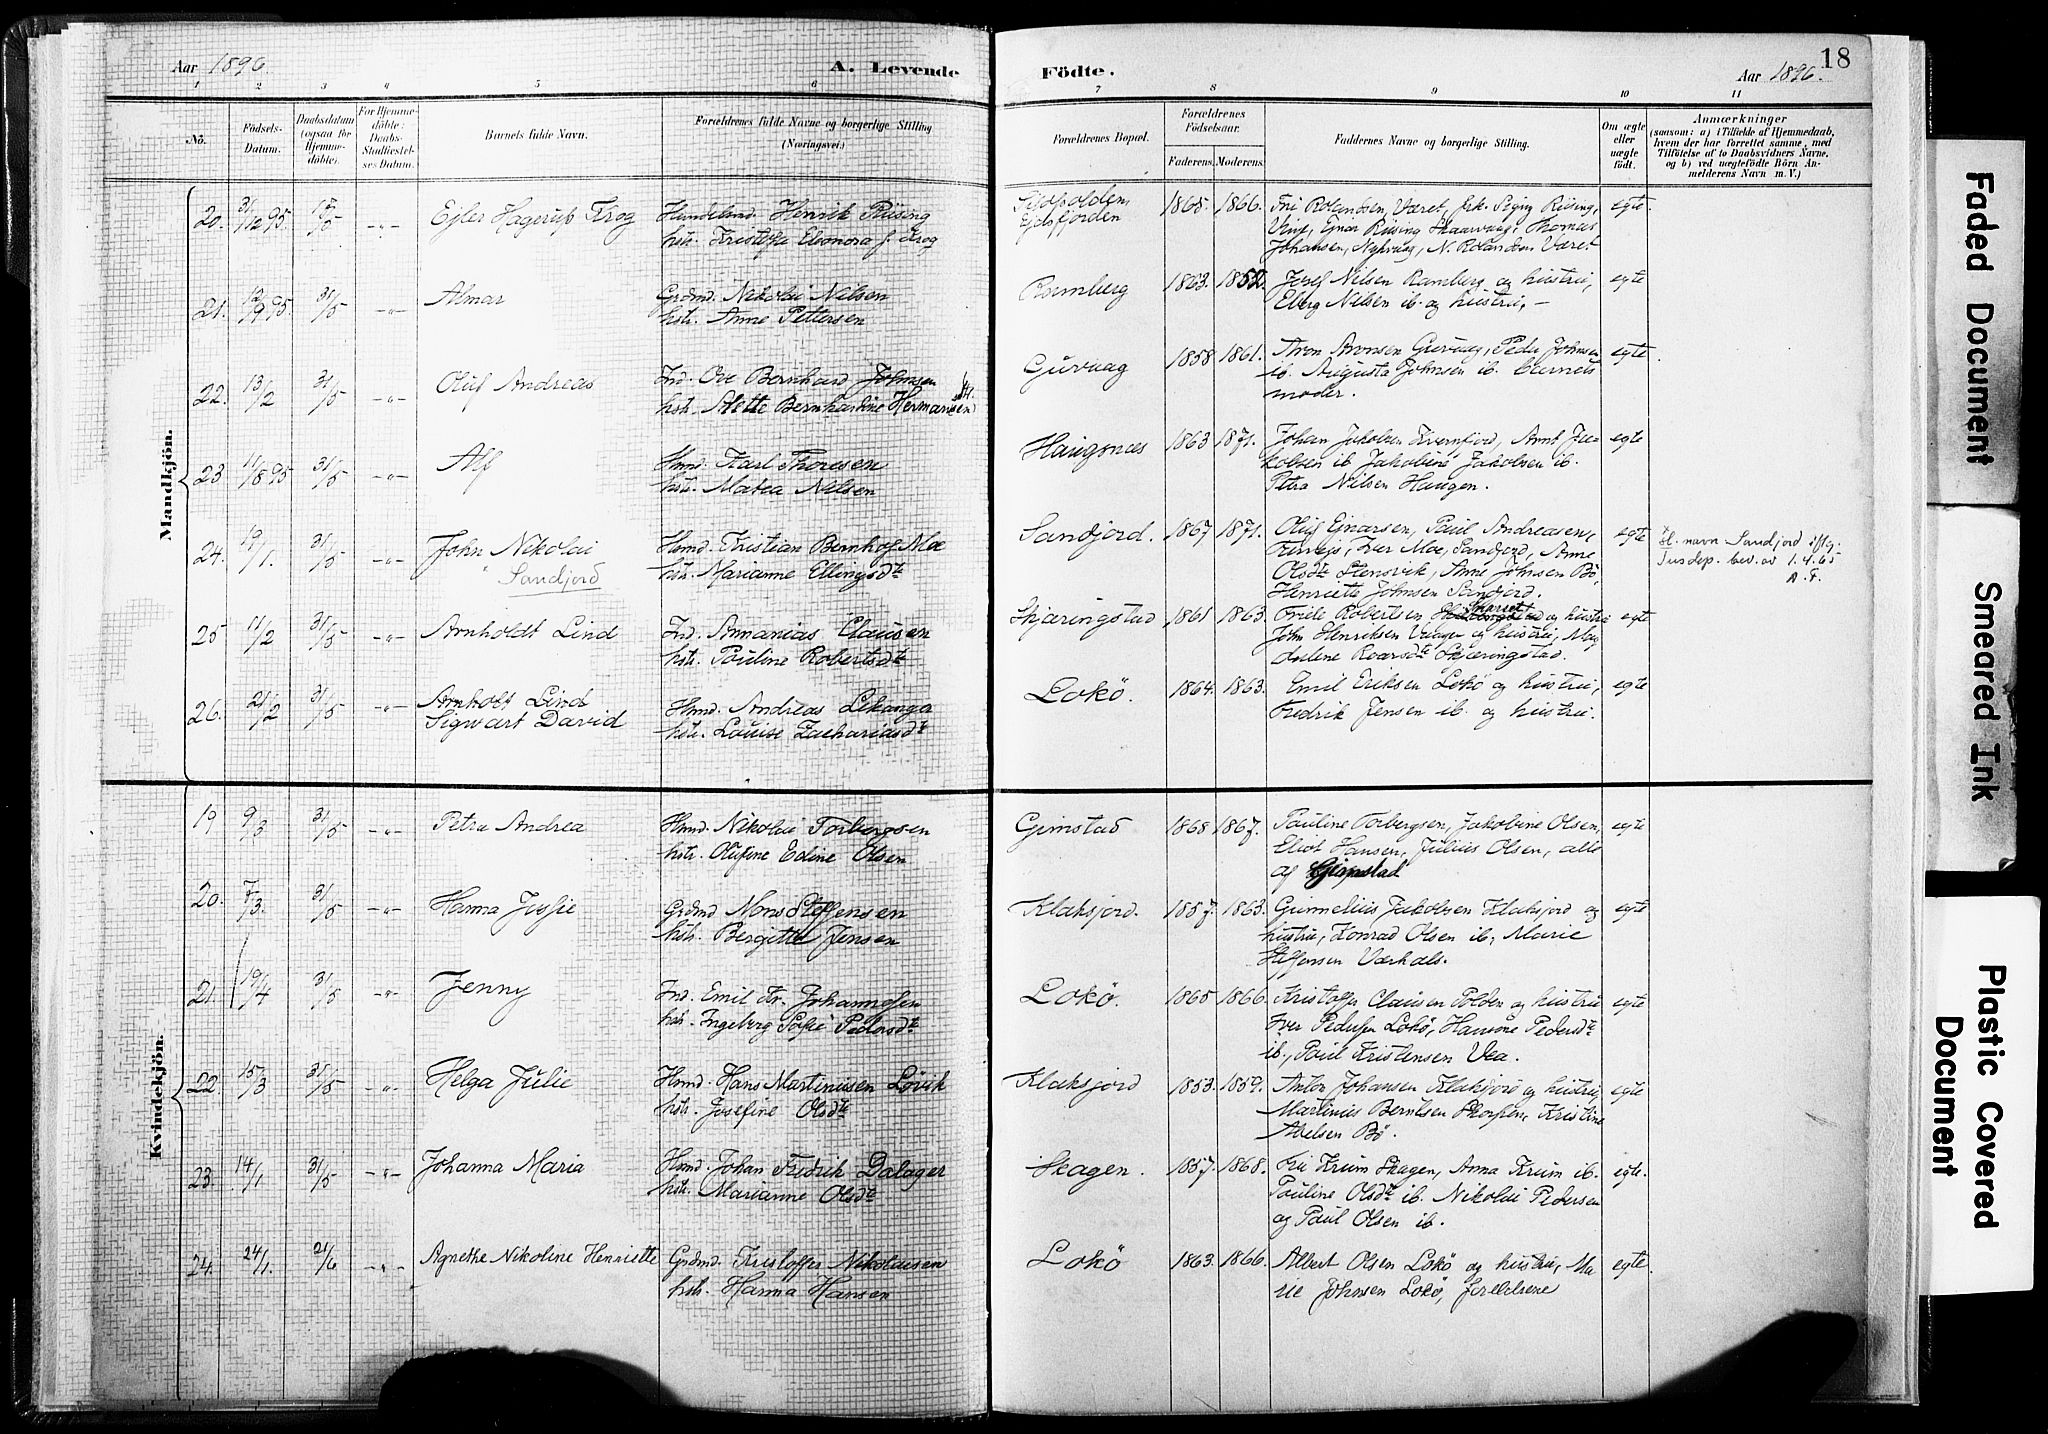 18
Aar 1896.
A. Levende
Födte.
Aar 1896.
1 2 3 4 5 6 7 8 9 10 11
No.
Födsels-
Datum.
Daabsdatum
(ogsaa for
Hjemme-
döbte).
For Hjemme-
döbte:
Daabs-
Stadfæstel-
ses Datum.
Barnets fulde Navn.
Forældrenes fulde Navne og borgerlige Stilling
(Næringsvei.)
Forældrenes Bopæl.
Forældrenes
Födselsaar.
Faderens. Moderens.
Faddernes Navne og borgerlige Stilling.
Om ægte
eller
uægte
födt.
Anmærkninger
(saasom: a) i Tilfælde af Hjemmedaab,
hvem der har forrettet samme, med
Tilföielse af to Daabsvidners Navne,
og b) ved uægtefödte Börn An-
melderens Navn m. V.)
Mandkjön.
20. 31/12 95. 17/5 -"- Ejler Hagerup Krog
Henrik Riising
hstr. Eleonora f. Krog
Ejdsfjorden
1865. 1866.
Været, frk. Riising,
Thomas
Johansen, Nykvaag, N. Rolandsen Været
egte.
21. 12/9 95. 31/5 -"- Almar
Grdmd. Nikolai Nilsen
hstr. Anne Pettersen
Ramberg
1863. 1852.
Josef Nilsen Ramberg og hustru,
Eberg Nilsen ib. og hustru, –
egte
22. 13/2 31/5 -"- Oluf Andreas
Ind. Ove Bernhard Johnsen
hstr. Alette Bernhardine Hermansen
Guvaag
1858 1861.
Aron Aronsen Guvaag, Peder Johnsen
ib. Augusta Johnsen ib. barnets
moder.
egte.
23 11/8 95 31/5 -"- Alf
Hmd. Karl Thoresen
hstr. Matea Nilsen
Haugsnæs
1863 1871.
Johan Jakobsen Kvernfjord, Arnt Ja-
kobsen ib. Jakobine Jakobsen ib.
Petra Nilsen Haugen.
egte
24. 19/1. 31/5 -"- John Nikolai
Sandjord
Hmd. Kristian Bernhof Moe
hstr. Marianne Ellingsdtr
Sandjord.
1867 1871.
Oluf Ejnarsen, Paul Andreasen,
Iver Moe, Sandjord, Anne
Olsdtr Stensvik, Anne Johnsen Bö,
Henriette Johnsen Sandjord.
egte
Sl. navn Sandjord iflg.
Jusdep. bev. av 1.4.65
A.F.
25 11/2 31/5 -"- Arnholdt Lind
Ind. Annanias Clausen
hstr. Pauline Robertsdtr
Skjæringstad
1861 1863.
Robertsen og hustru
John Henriksen og hustru, Mag
dalene Roarsdtr Skjæringstad.
egte
26. 21/2 31/5 -"- Arnholt Lind
Sigwart David
Hmd. Andreas Lekanger
hstr. Louise Zachariasdtr
Lokö.
1864. 1863.
Emil Eriksen Lokö og hustru,
Fredrik Jensen ib. og hustru.
egte
Kvindekjön.
19 9/3 31/5 -"- Petra Andrea
Hmd. Nikolai Torbergsen
hstr. Olufine Edine Olsen
Gimstad
1868 1867.
Pauline Torbergsen, Jakobine Olsen,
Eliot Hansen, Julius Olsen, alle
af Gimstad
egte
20. 7/3. 31/5 -"- Hanna Josfie
Grdmd Mons Steffensen
hstr. Bergitte Jensen
Klaksjord.
1857. 1863.
Gunnelius Jakobsen Klaksjord og
hustru, Konrad Olsen ib., Marie
Steffensen Værhals.
egte
21. 19/4 31/5 -"- Jenny
Ind. Emil Fr. Johannesen
hstr. Ingeborg Sofie Pedersdtr
Lokö.
1865 1866.
Kristoffer Clausen Polden og hustru
Iver Pedersen Lokö, Hansine Pedersdtr
ib., Paul Kristensen Vea.
egte
22. 15/3 31/5 -"- Helga Julie
Hmd. Hans Martinusen Lövik
hstr. Josefine Olsdtr
Klaksjord
1853. 1859.
Anton Johansen Klaksjord og hustru,
Martinus Berntsen Skorpen, Kristine
Abelsen Bö.
egte
23. 14/1 31/5 -"- Johanna Maria
Hmd. Johan Fredrik Dalager
hstr. Marianne Olsdtr
Skagen.
1857. 1868.
Krum Skagen, Anna Krum ib.
Pauline Olsdtr ib. Nikolai Pedersen
og Paul Olsen ib.
egte.
24. 24/1. 21/6 -"- Agnethe Nikoline Henriette
Grdmd. Kristoffer Nikolaisen
hstr. Hanna Hansen
Lokö
1863. 1866.
Albert Olsen Lokö og hustru, Ma
rie Johnsen Lokö, forældrene
egte.
Faded Document
Smeared Ink
Plastic Covered
Document